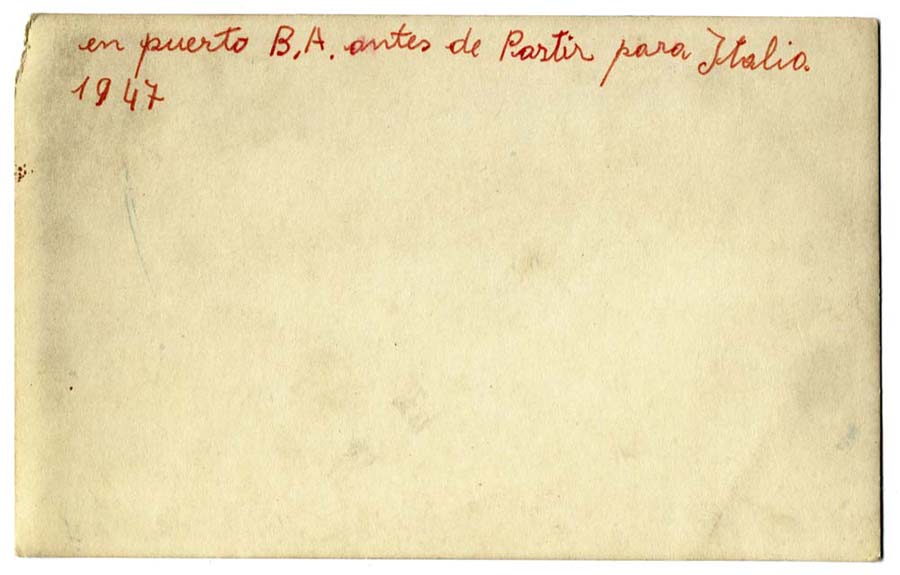 en puerto B.A. antes de Partir para Italia
1947